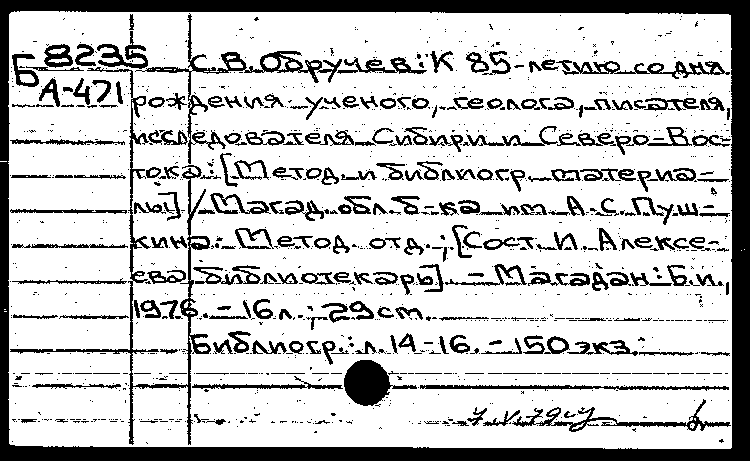 Б 8235
А-471
С.В. Обручев: К 85-летию со дня
рождения ученого, геолога, писателя,
исследователя Сибири и Северо-Вос-
тока: [Метод. и библиогр. материа-
лы] / Магад. обл. б-ка им. А.С. Пуш-
кина. Метод. отд.; [Сост. И. Алексе-
ева, библиотекарь]. - Магадан: Б.и.,
1976. - 16 л.; 29 cm.
Библиогр.: л. 14-16. - 150 экз.